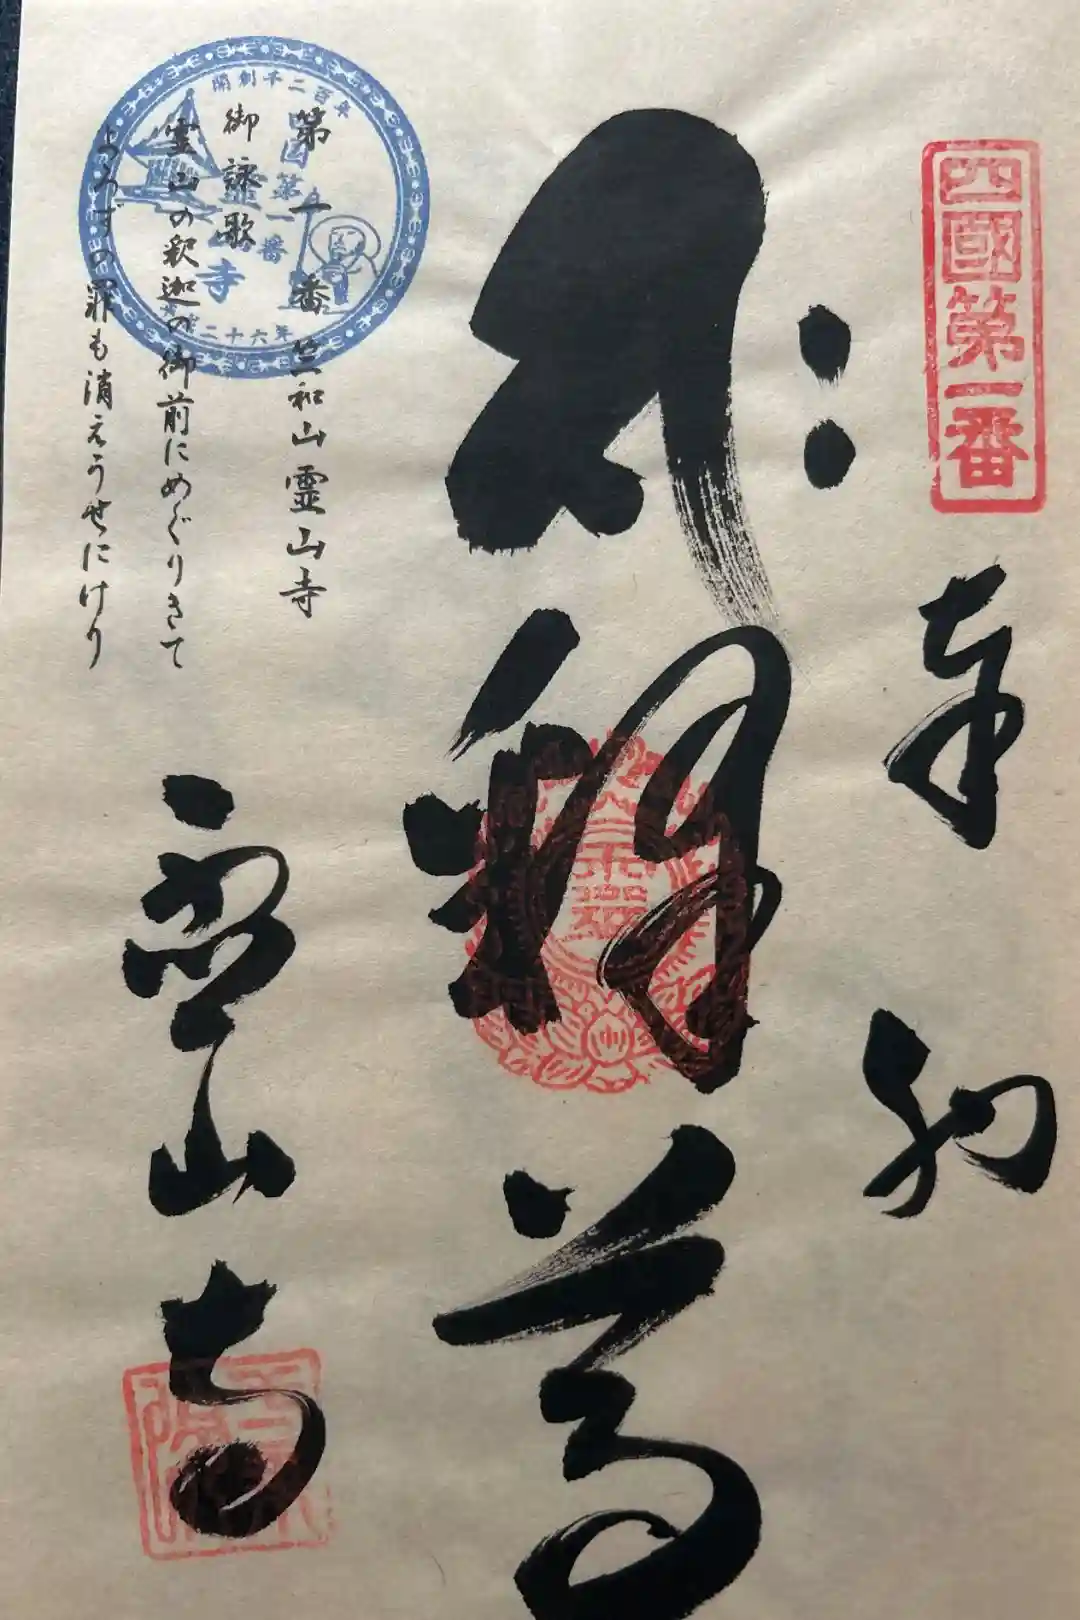 四國第一番
奉納
釋尊
霊山寺
第一番 竺和山霊山寺
御詠歌
霊山の釈迦の御前にめぐりきて
よろずの罪も消えうせにけり
開創千二百年
第一番
寺
二十六年